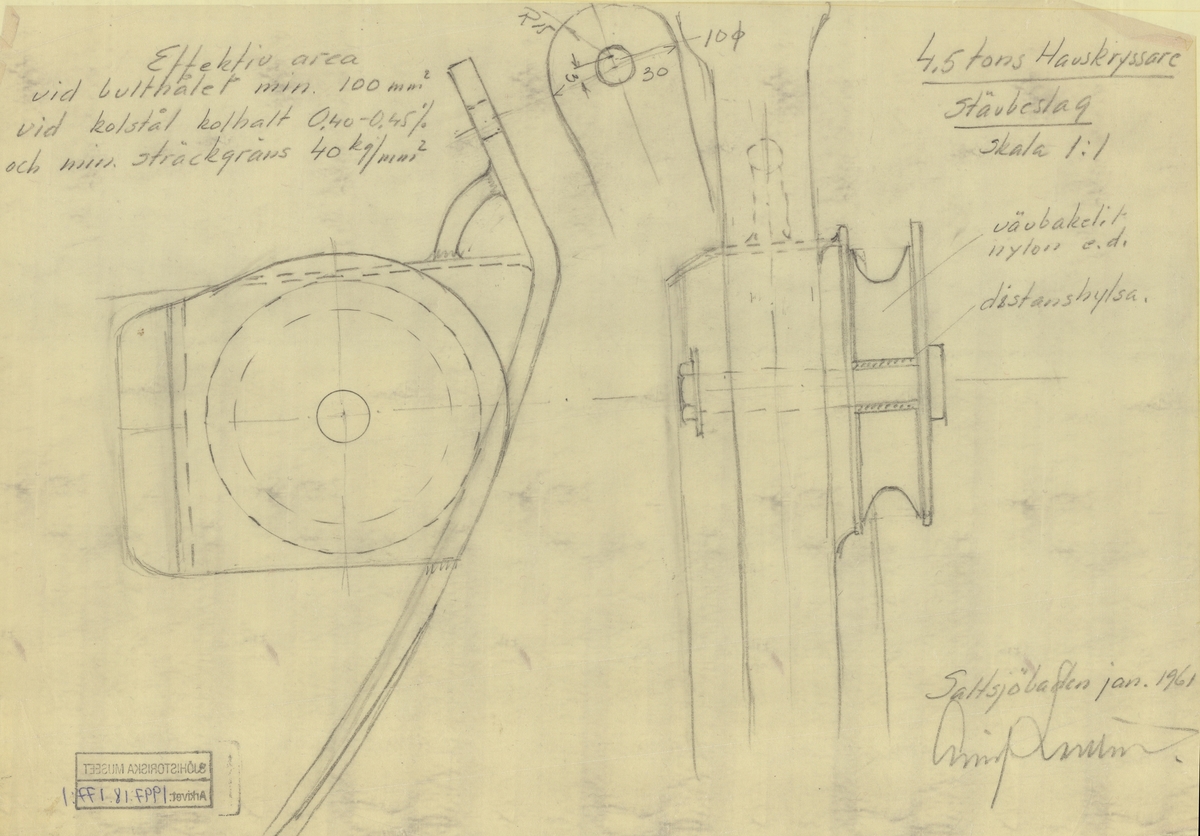 Effektiv area
vid bulthålet min. 100 mm²
vid kolstål kolhalt 0,40-0,45%
och min. sträckgräns 40 kg/mm²
R15
10φ
30
4,5 tons Havskryssare
Stävbeslag
Skala 1:1
vävbakelit
nylon e.d.
distanshylsa.
Saltsjöbaden jan. 1961
SJÖHISTORISKA MUSEET
Arkivet: 1997.18.177:1